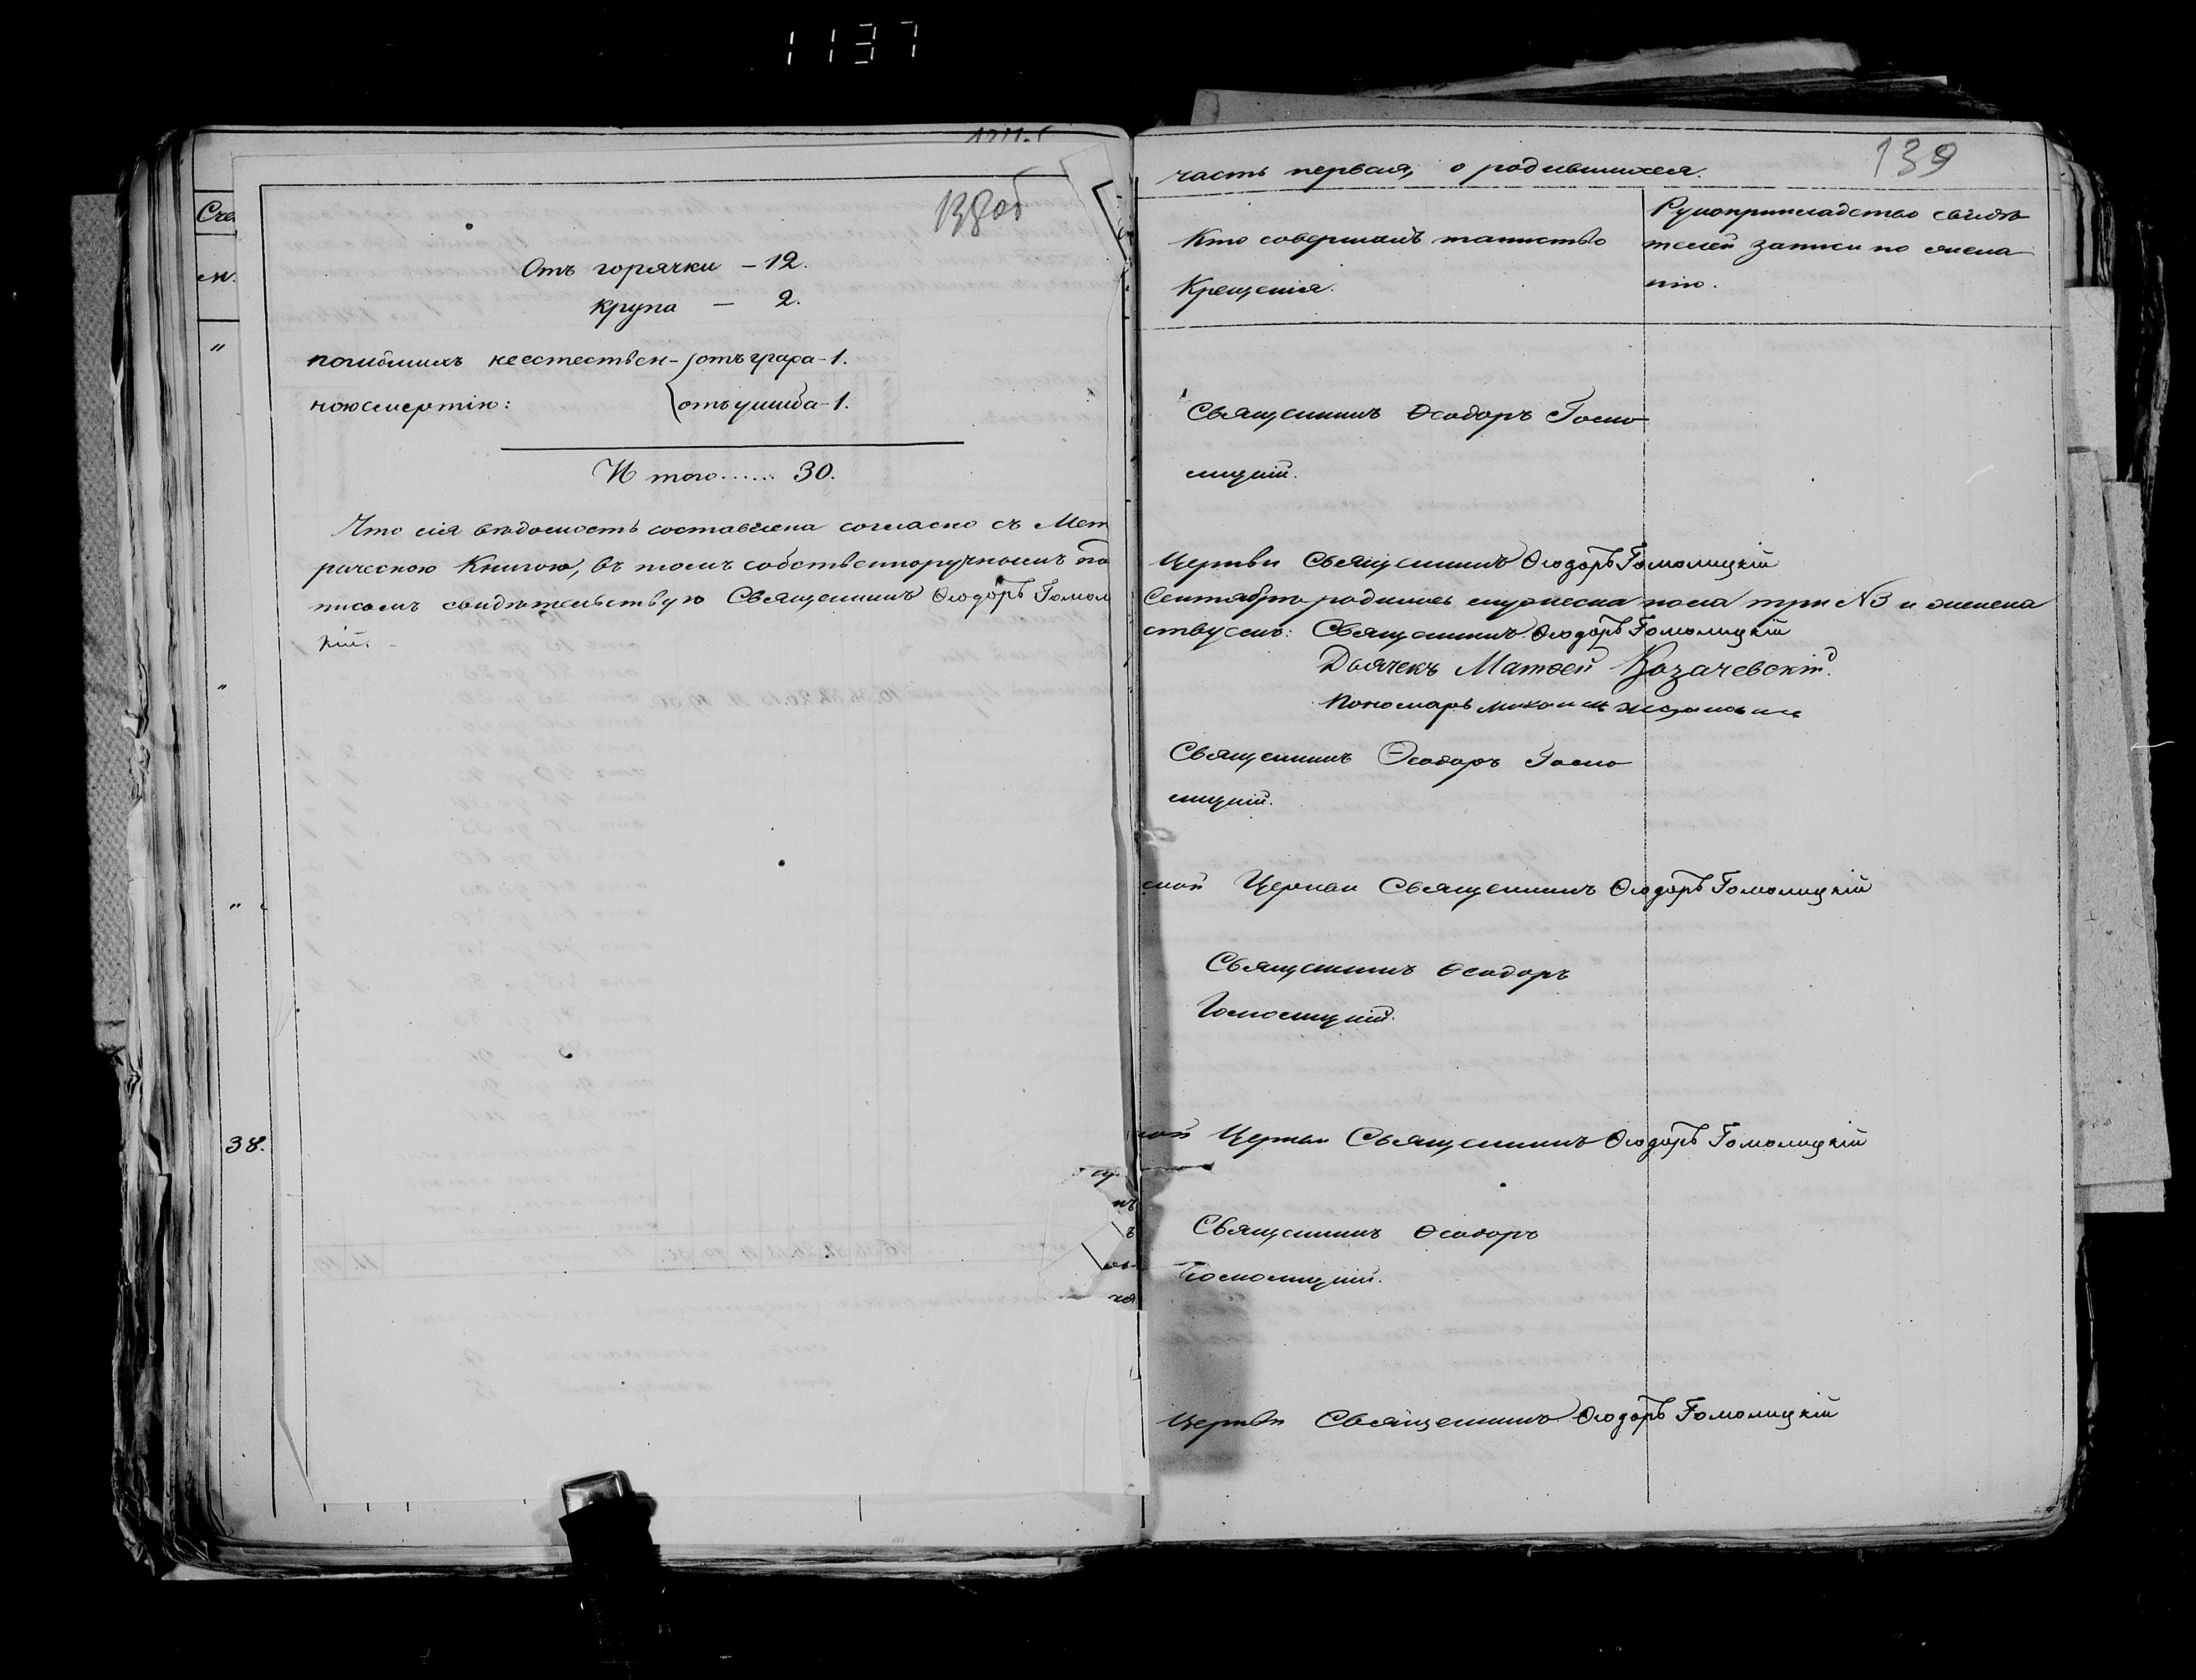 1137
138об
Сче
м.
"
"
"
38.
Отъ горячки – 12.
крупа – 2.
погибшихъ неестествен- отъ удара-1.
ною смертію: отъ ушиба-1.
И того...... 30.
Что сія вѣдомость составлена согласно съ Мет
рическою Книгою, въ томъ собственноручнымъ по
писомъ свидѣтельствую Священникъ Ѳеодоръ Гомол
кій.
139
часть первая, о родившихся.
Кто совершалъ таинство
Крещенія.
Рукоприкладство свидѣ
телей записи по жела
нію.
Священникъ Ѳеодоръ Гомо
лицкій.
Церкви Священникъ Ѳеодоръ Гомолицкій
Сентябрѣ родилось мужеска пола три №3 и женска
ствуемъ: Священникъ Ѳеодоръ Гомолицкій
Дьячекъ Матѳей Козачевскій.
Пономарь Михаилъ
Священникъ Ѳеодоръ Гомо
лицкій.
ской Церкви Священникъ Ѳеодоръ Гомолицкій
Священникъ Ѳеодоръ
Гомолицкій.
кой Церкви Священникъ Ѳеодоръ Гомолицкій
Священникъ Ѳеодоръ
Гомолицкій.
Церкви Священникъ Ѳеодоръ Гомолицкій